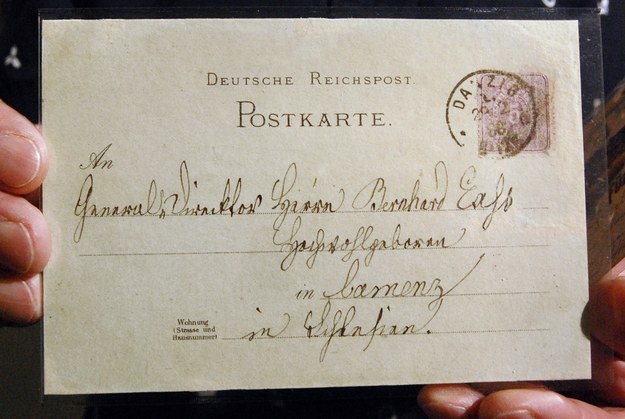 DEUTSCHE REICHSPOST.
POSTKARTE.
DANZIG
An
General Direcktor Herrn Bernhard
Hochwohlgeboren
in Camenz
Wohnung
(Strasse und
Hausnummer)
in Schlesien.